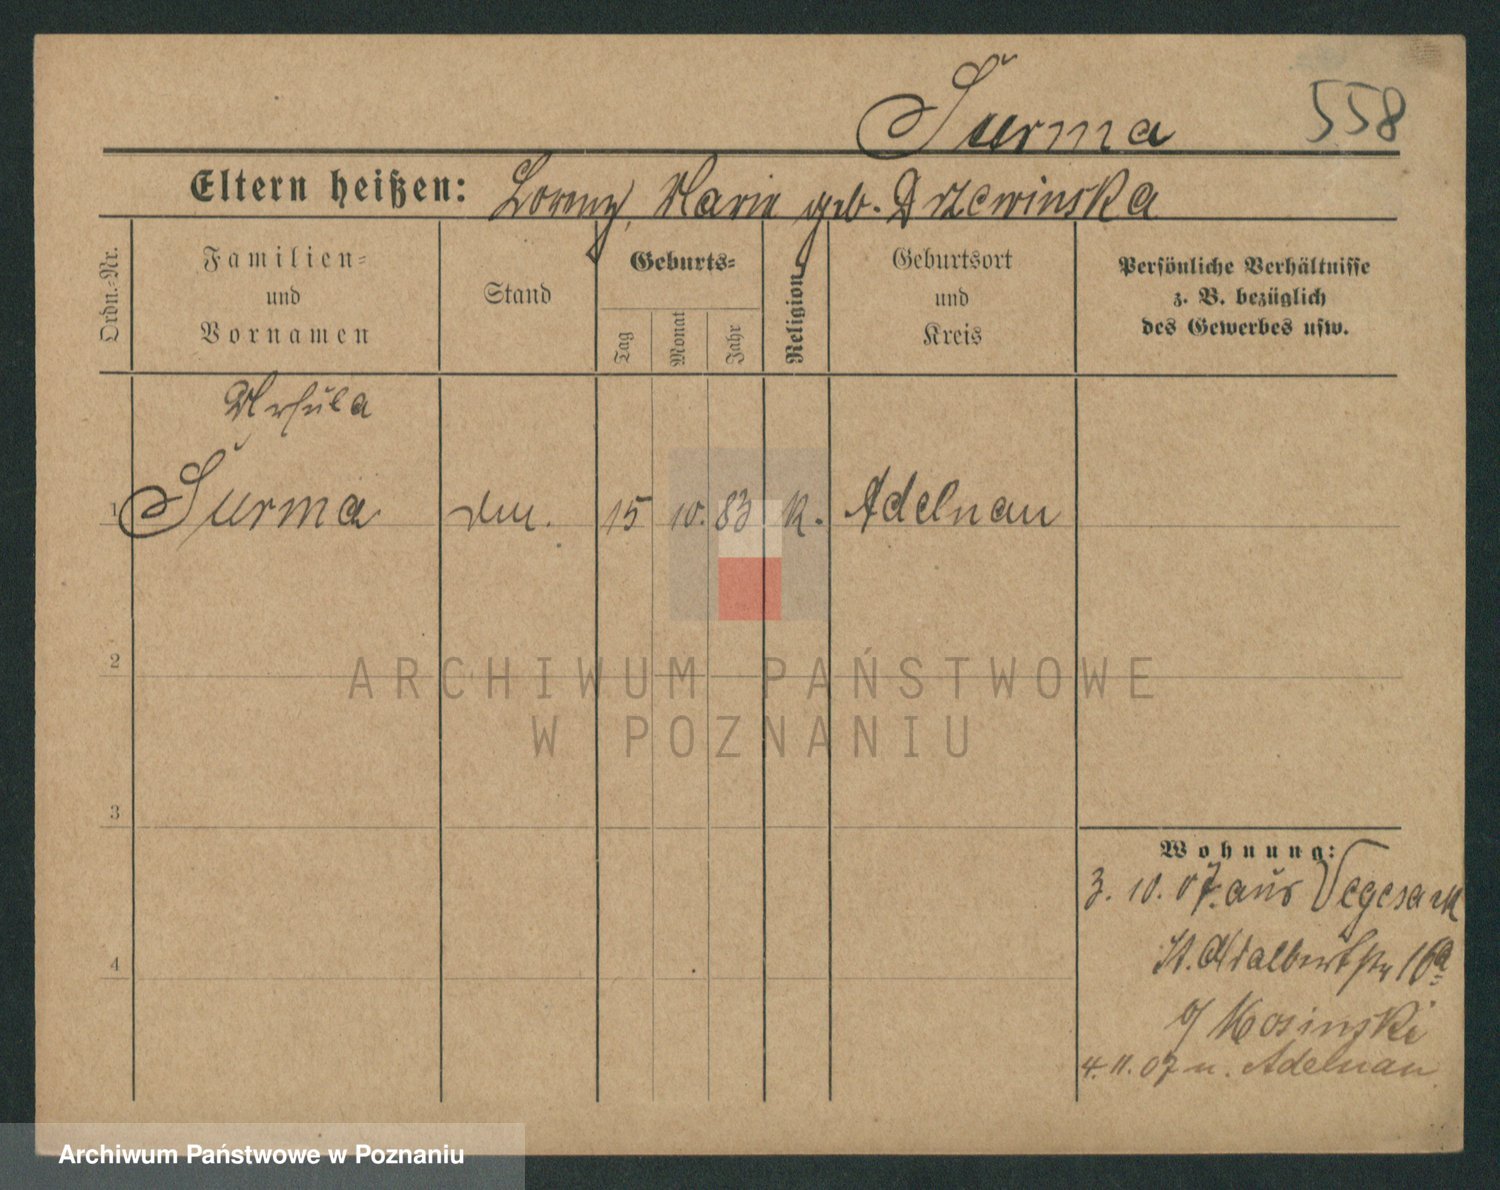 Surma 558
Eltern heißen: Lorenz, Marie geb. Drzewinska
Ordn.-Nr.
Familien-
und
Vornamen
Stand
Geburts-
Tag
Monat
Jahr
Religion
Geburtsort
und
Kreis
Persönliche Verhältnisse
z. B. bezüglich
des Gewerbes usw.
Ursula
1 Surma 15 10. 83 k. Adelnau
2
ARCHIWUM PAŃSTWOWE
W POZNANIU
3
Wohnung:
3. 10. 07. aus Vegesack
St. Adalbertstr 16a
b/ Kosinski
4
4. 11. 07 n. Adelnau
Archiwum Państwowe w Poznaniu